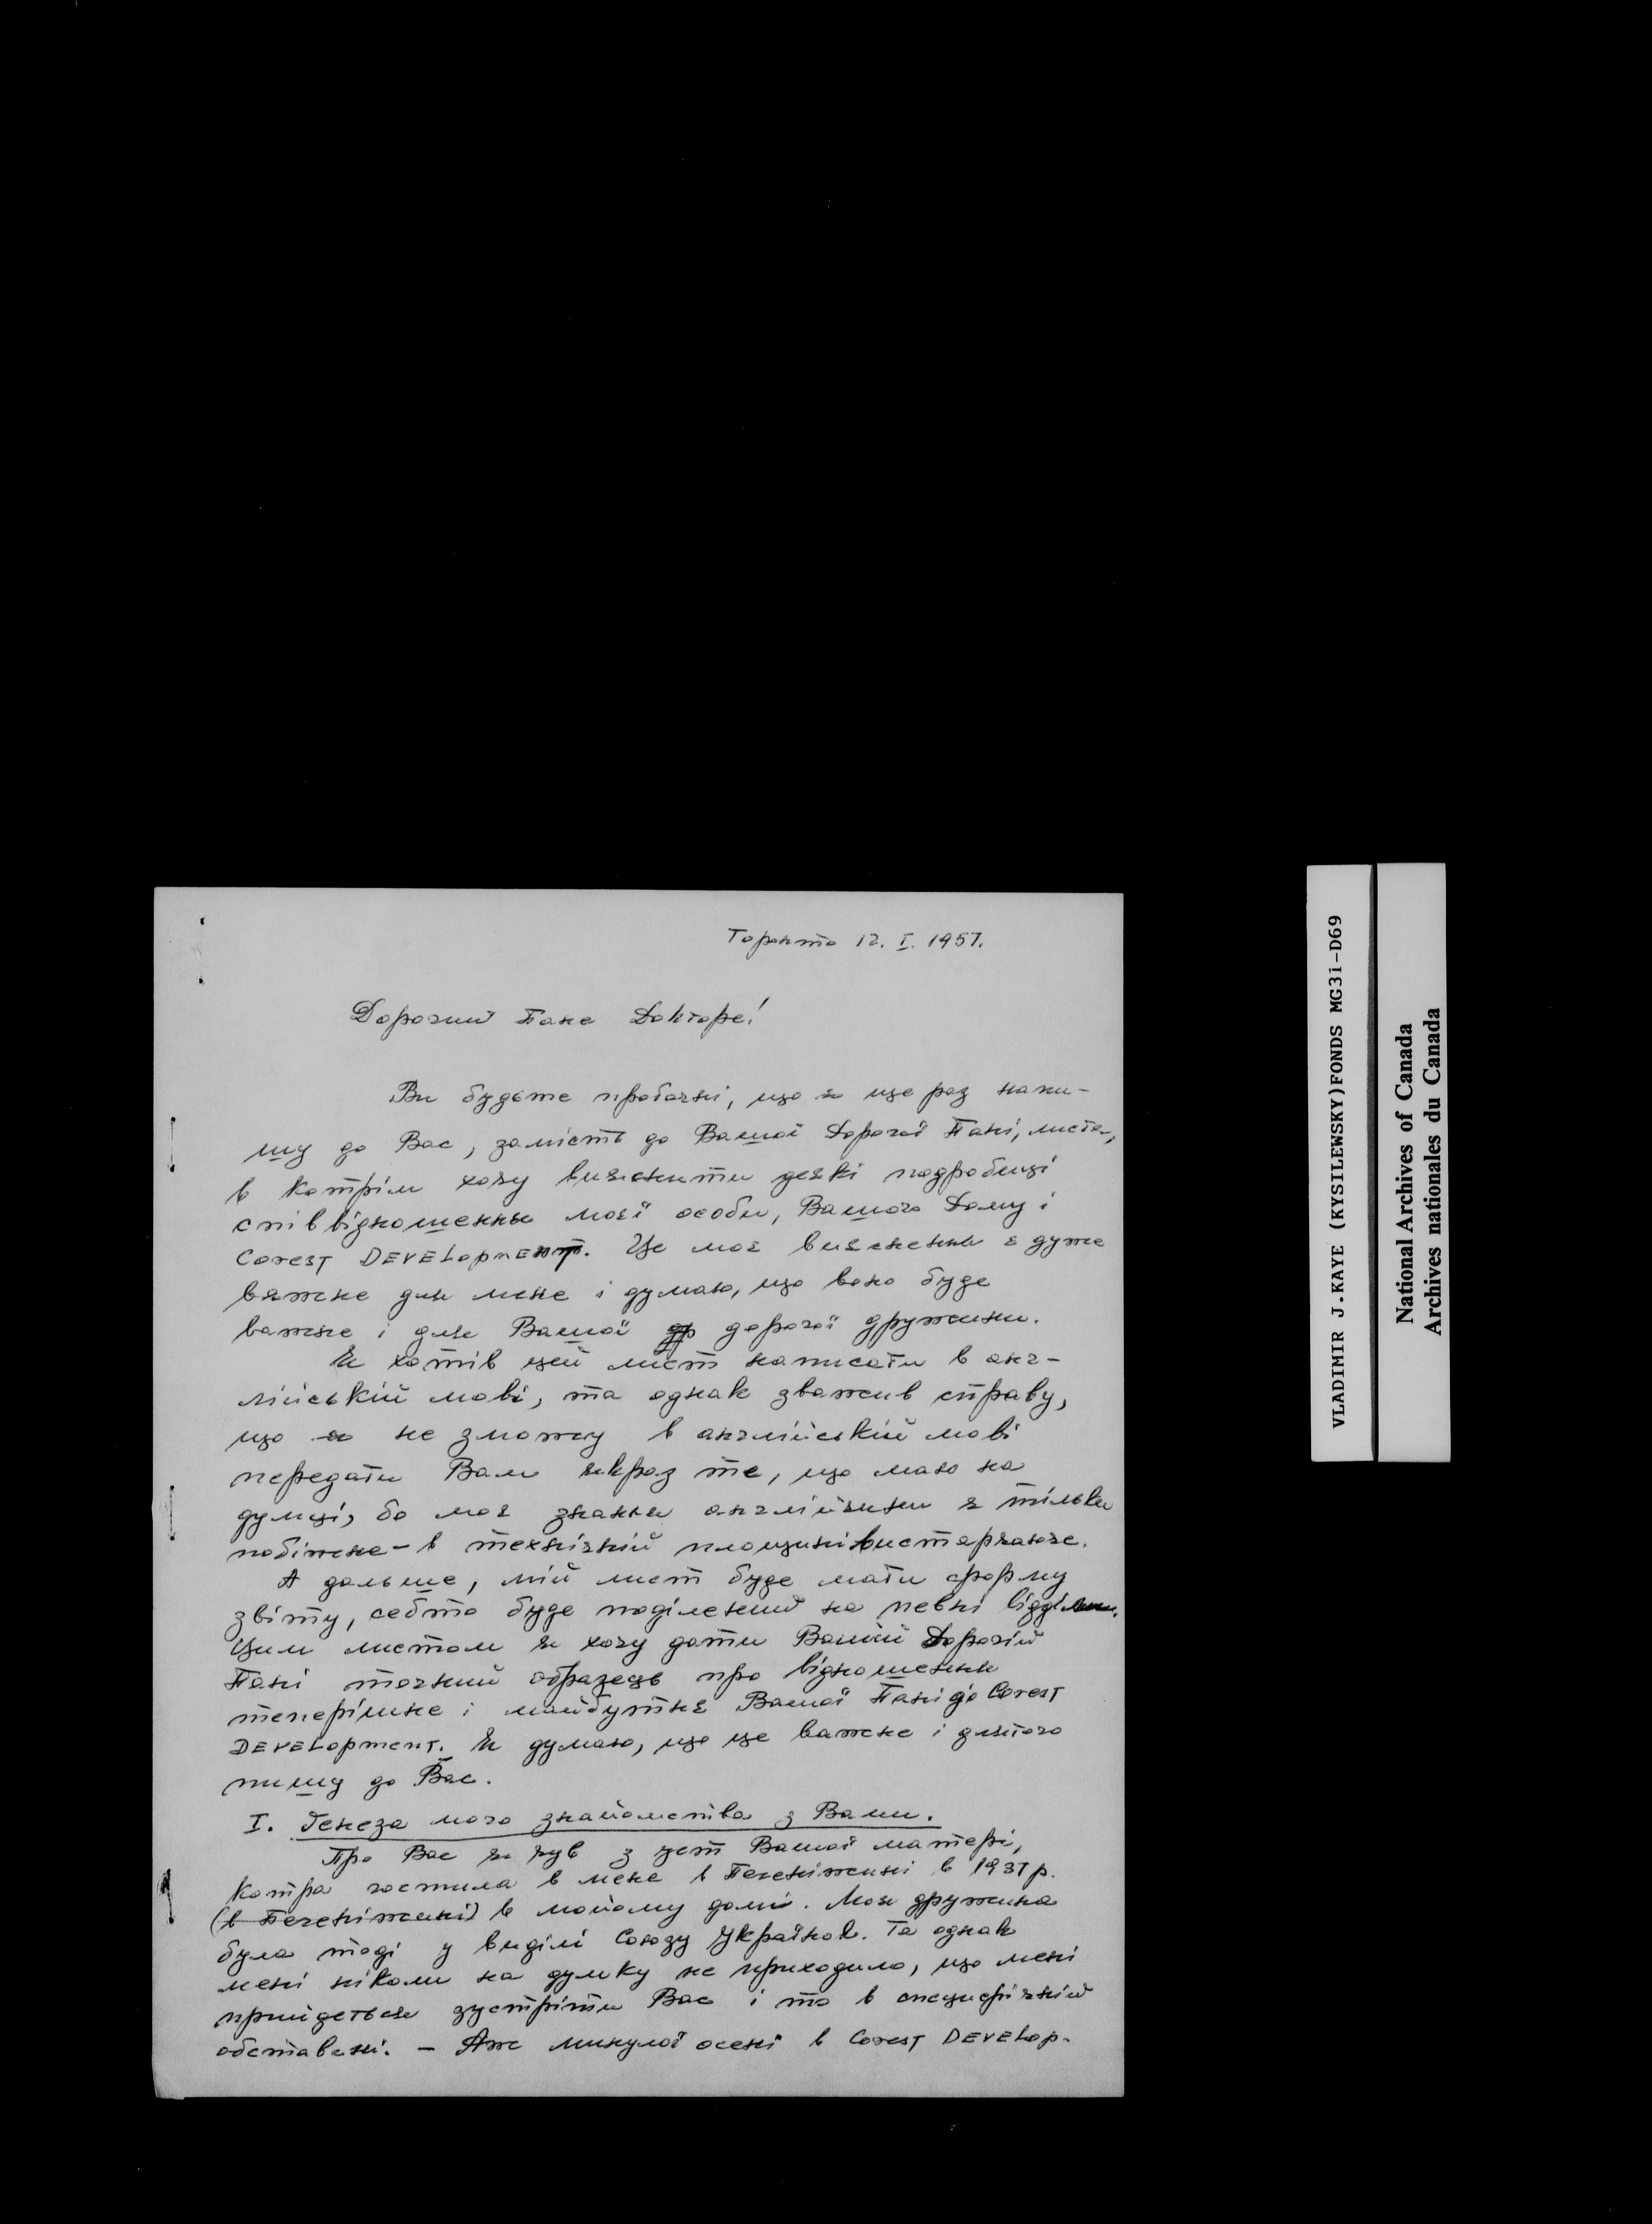 Торонто 12. I. 1957.
Дорогий Пане Докторе!
Ви будьте пробачні, що я ще раз напи-
шу до Вас, замість до Вашої Дорогої Пані, листа,
в котрім хочу вияснити деякі подробиці
співвідношення моєї особи, Вашого Дому і
Corest DEVELopmenт. Це моє вияснення є дуже
вяжне для мене і думаю, що воно буде
важне і для Вашої др дорогої дружини.
Я хотів цей лист написати в анг-
лійській мові, та однак зважив справу,
що я не зможу в англійській мові
передати Вам якраз те, що маю на
думці, бо моє знання англійщини є тільки
побіжне - в технічній площині вистарчаюче.
А дальше, мій лист буде мати форму
звіту, себто буде поділений на певні відділи.
Цим листом я хочу дати Вашій Дорогій
Пані точний образець про відношення
теперішнє і майбутнє Вашої Пані до Corest
DEVELopment. Я думаю, що це важне і длятого
пишу до Вас.
I. Генеза мого знайомства з Вами.
Про Вас я чув з уст Вашої матері,
котра гостила в мене в Печеніжині в 1937 р.
(в Печеніжині) в мойому домі. Моя дружина
була тоді у виділі Союзу Українок. Та однак
мені ніколи на думку не приходило, що мені
прийдеться зустріти Вас і то в специфічній
обставині. - Аж минулої осені в Corest DEVELop-
VLADIMIR J.KAYE (KYSILEWSKY)FONDS MG3i-D69
National Archives of Canada
Archives nationales du Canada